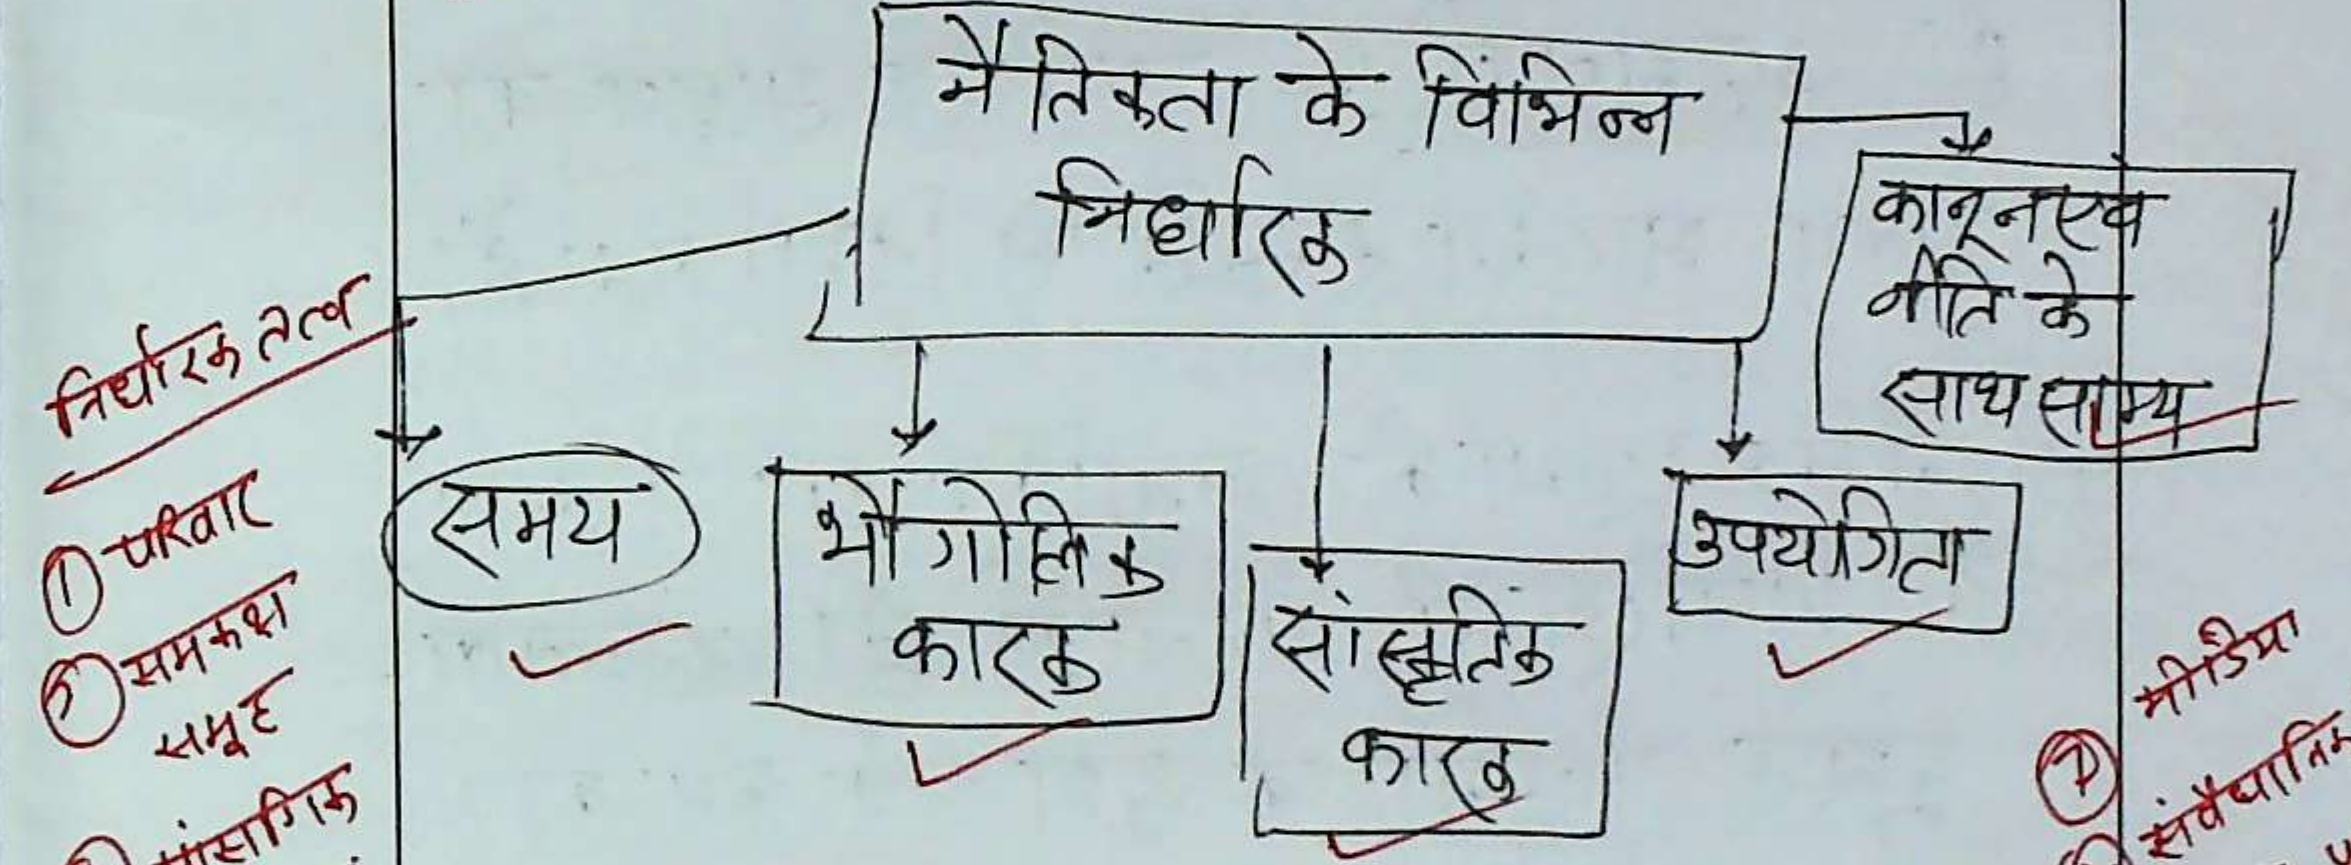 नैतिकता के विभिन्न
निर्धारक
कानून एवं
नीति के
साथ साम्य
समय
भौगोलिक
कारक
सांस्कृतिक
कारक
उपयोगिता
निर्धारक तत्व
① परिवार
② समकक्ष
समूह
मीडिया
संवैधानिक